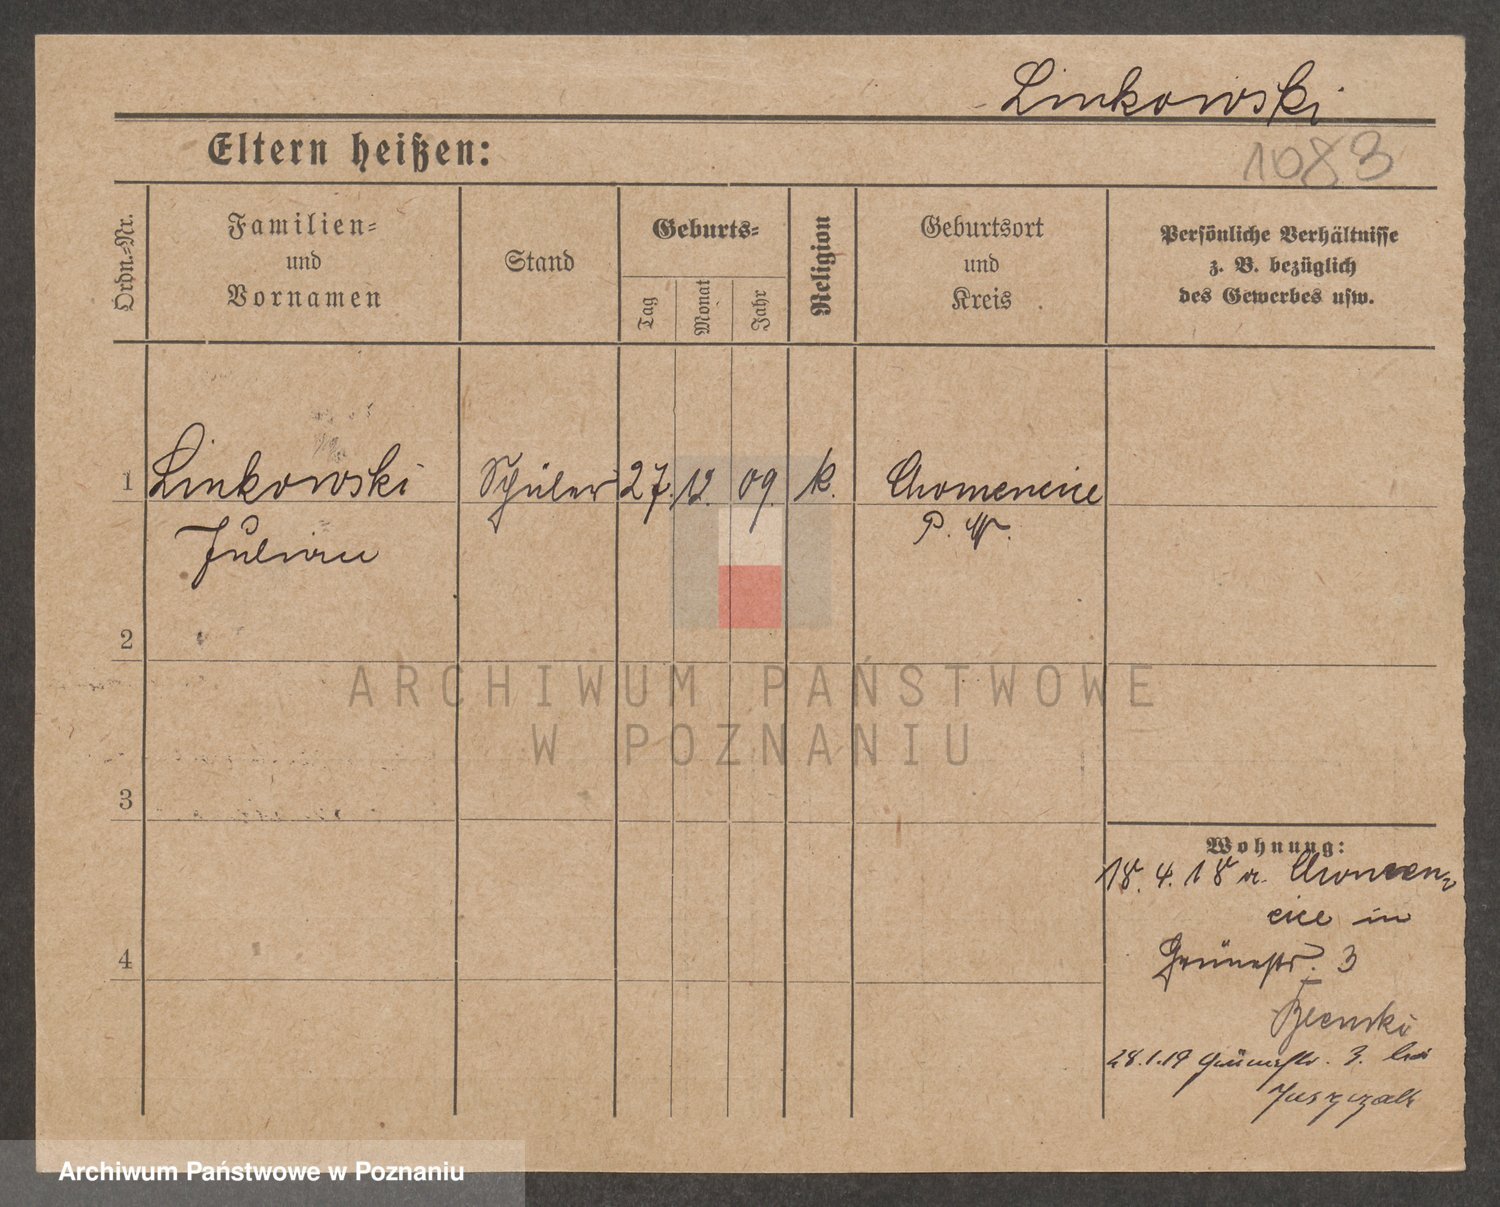 Linkowski
Eltern heißen:
1083
Ordn.=Nr.
Familien=
und
Vornamen
Stand
Geburts=
Tag
Monat
Jahr
Religion
Geburtsort
und
Kreis
Persönliche Verhältnisse
z. B. bezüglich
des Gewerbes usw.
1
Linkowski
Julian
Schüler
27. 12. 09.
k.
Chomencice
P. W.
2
3
4
Wohnung:
18. 4. 18 a. Chomen=
cice in
Grünestr. 3
28.1.19 Grünestr. 3. bei
Juszczak
ARCHIWUM PAŃSTWOWE
W POZNANIU
Archiwum Państwowe w Poznaniu